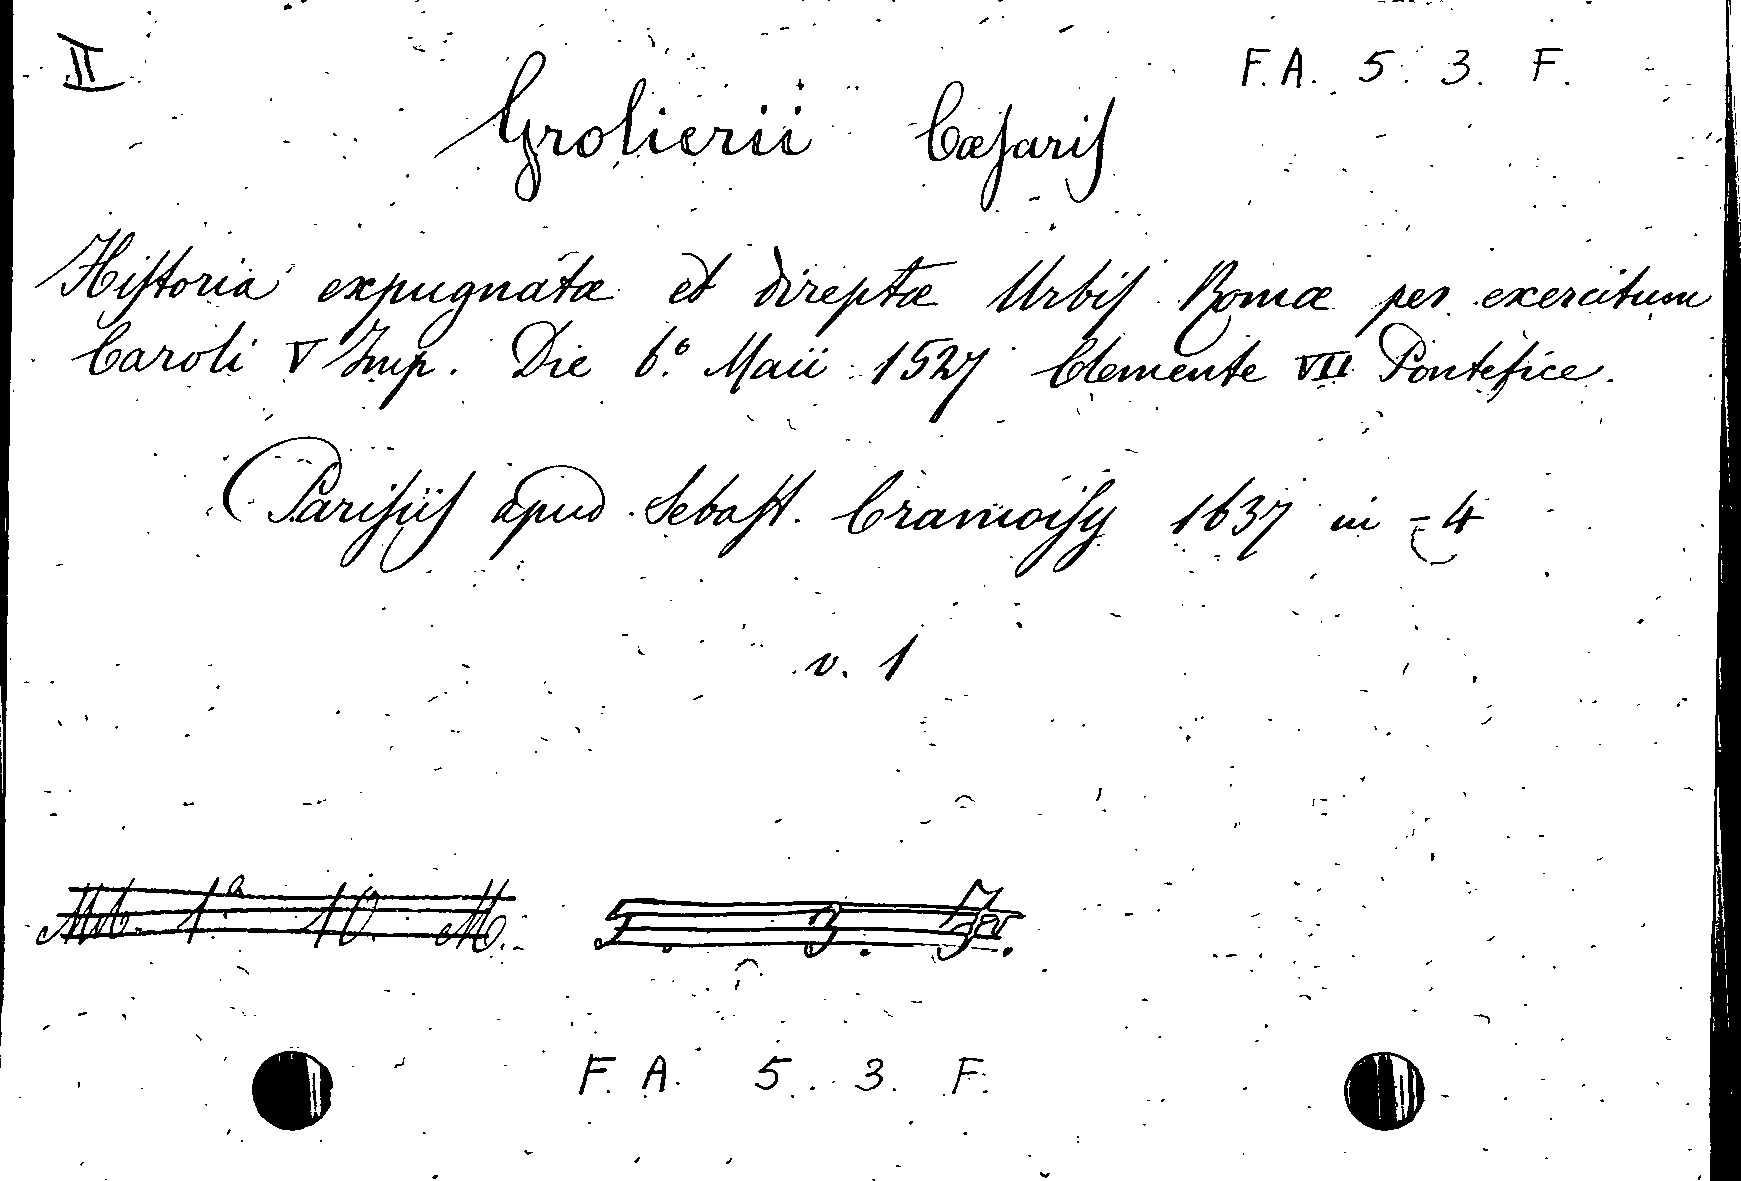 II
F. A. 5. 3. F.
Grolierii Cæſariſ
Hiſtoria expugnatæ et direptæ Urbiſ Romæ per exercitum
Caroli V Imp. Die 6.º Maii 1527 Clemente VII Pontefice.
Pariſiiſ apud Sebaſt. Cramoiſy 1637 in-4
v. 1
F. A. 5. 3. F.